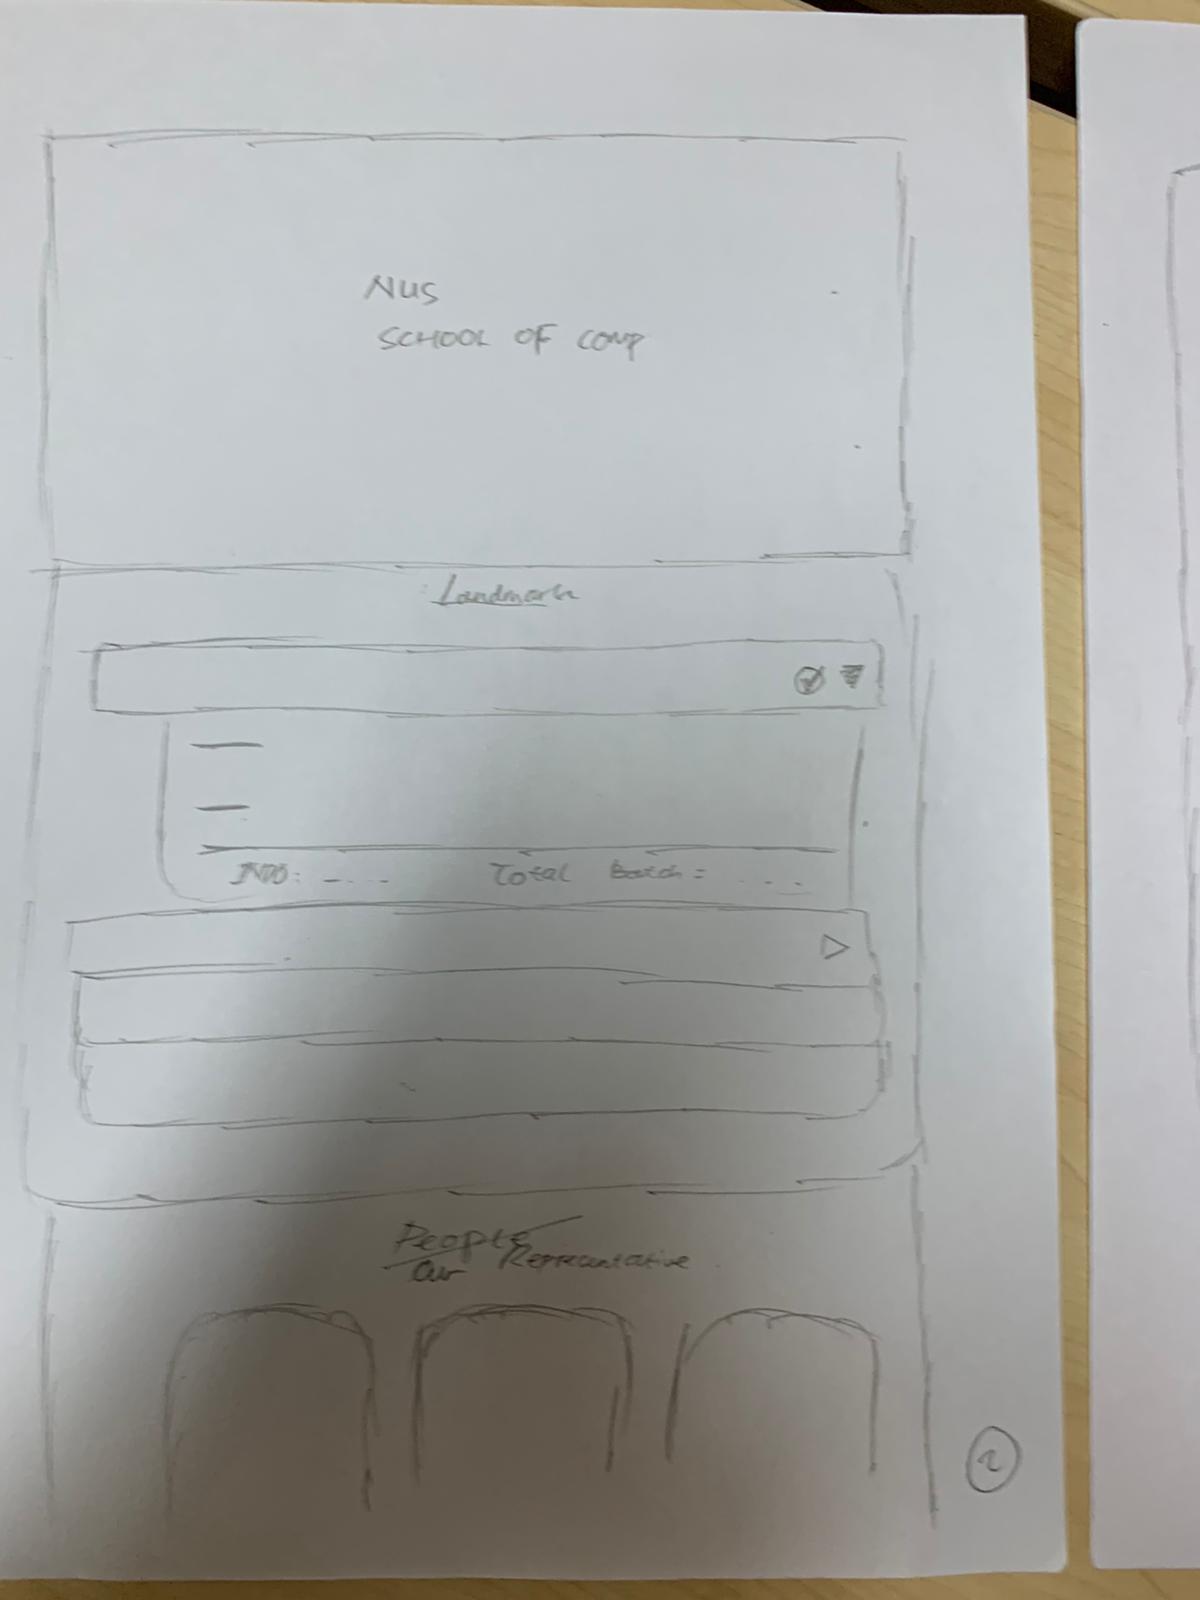 NUS
SCHOOL OF COMP
Landmark
Total Batch =
People
Our Representative
2